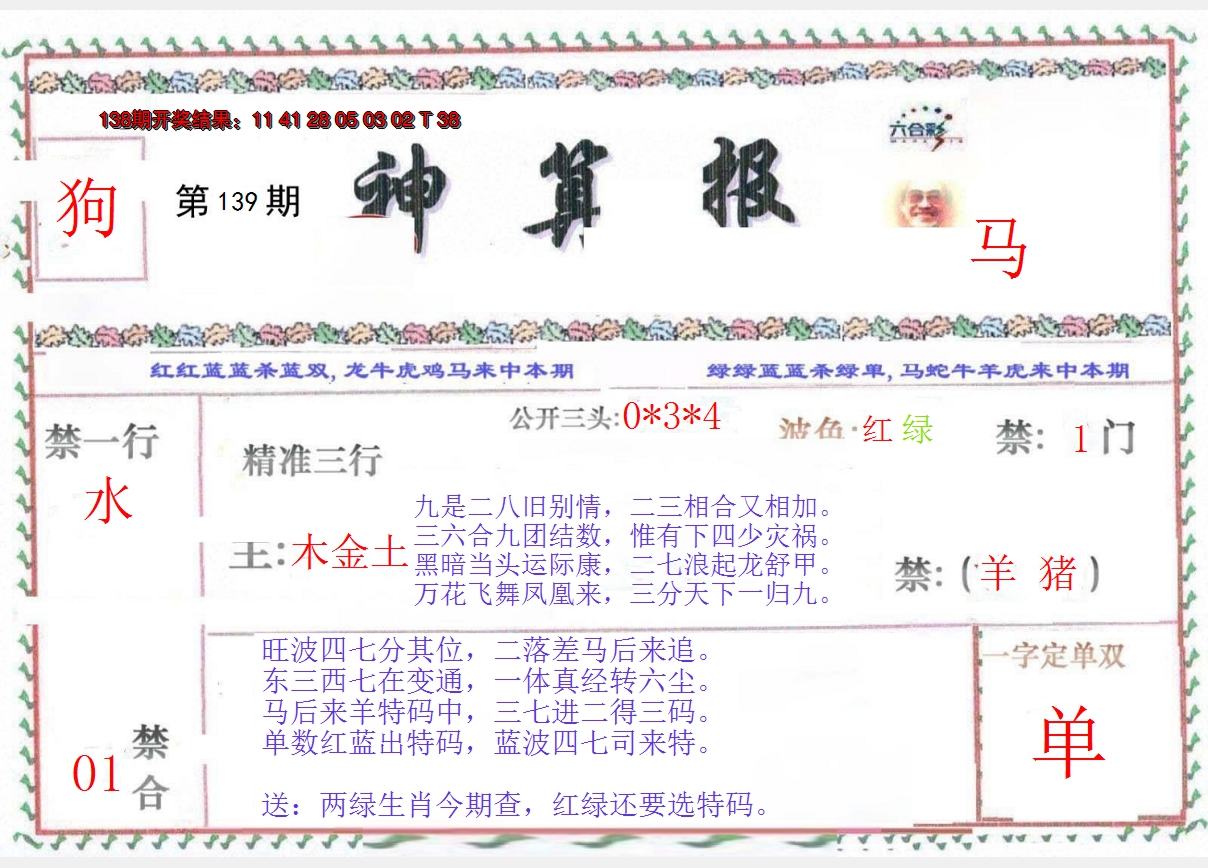 138期开奖结果：11 41 28 05 03 02 T 38
六合彩
狗
第 139 期
神算报
马
红红蓝蓝杀蓝双,龙牛虎鸡马来中本期
绿绿蓝蓝杀绿单,马蛇牛羊虎来中本期
禁一行
水
公开三头:0*3*4
波色:红 绿
禁: 1 门
精准三行
主:木金土
九是二八旧别情，二三相合又相加。
三六合九团结数，惟有下四少灾祸。
黑暗当头运际康，二七浪起龙舒甲。
万花飞舞凤凰来，三分天下一归九。
禁:(羊 猪)
旺波四七分其位，二落差马后来追。
东三西七在变通，一体真经转六尘。
马后来羊特码中，三七进二得三码。
单数红蓝出特码，蓝波四七司来特。
送：两绿生肖今期查，红绿还要选特码。
01
禁合
一字定单双
单